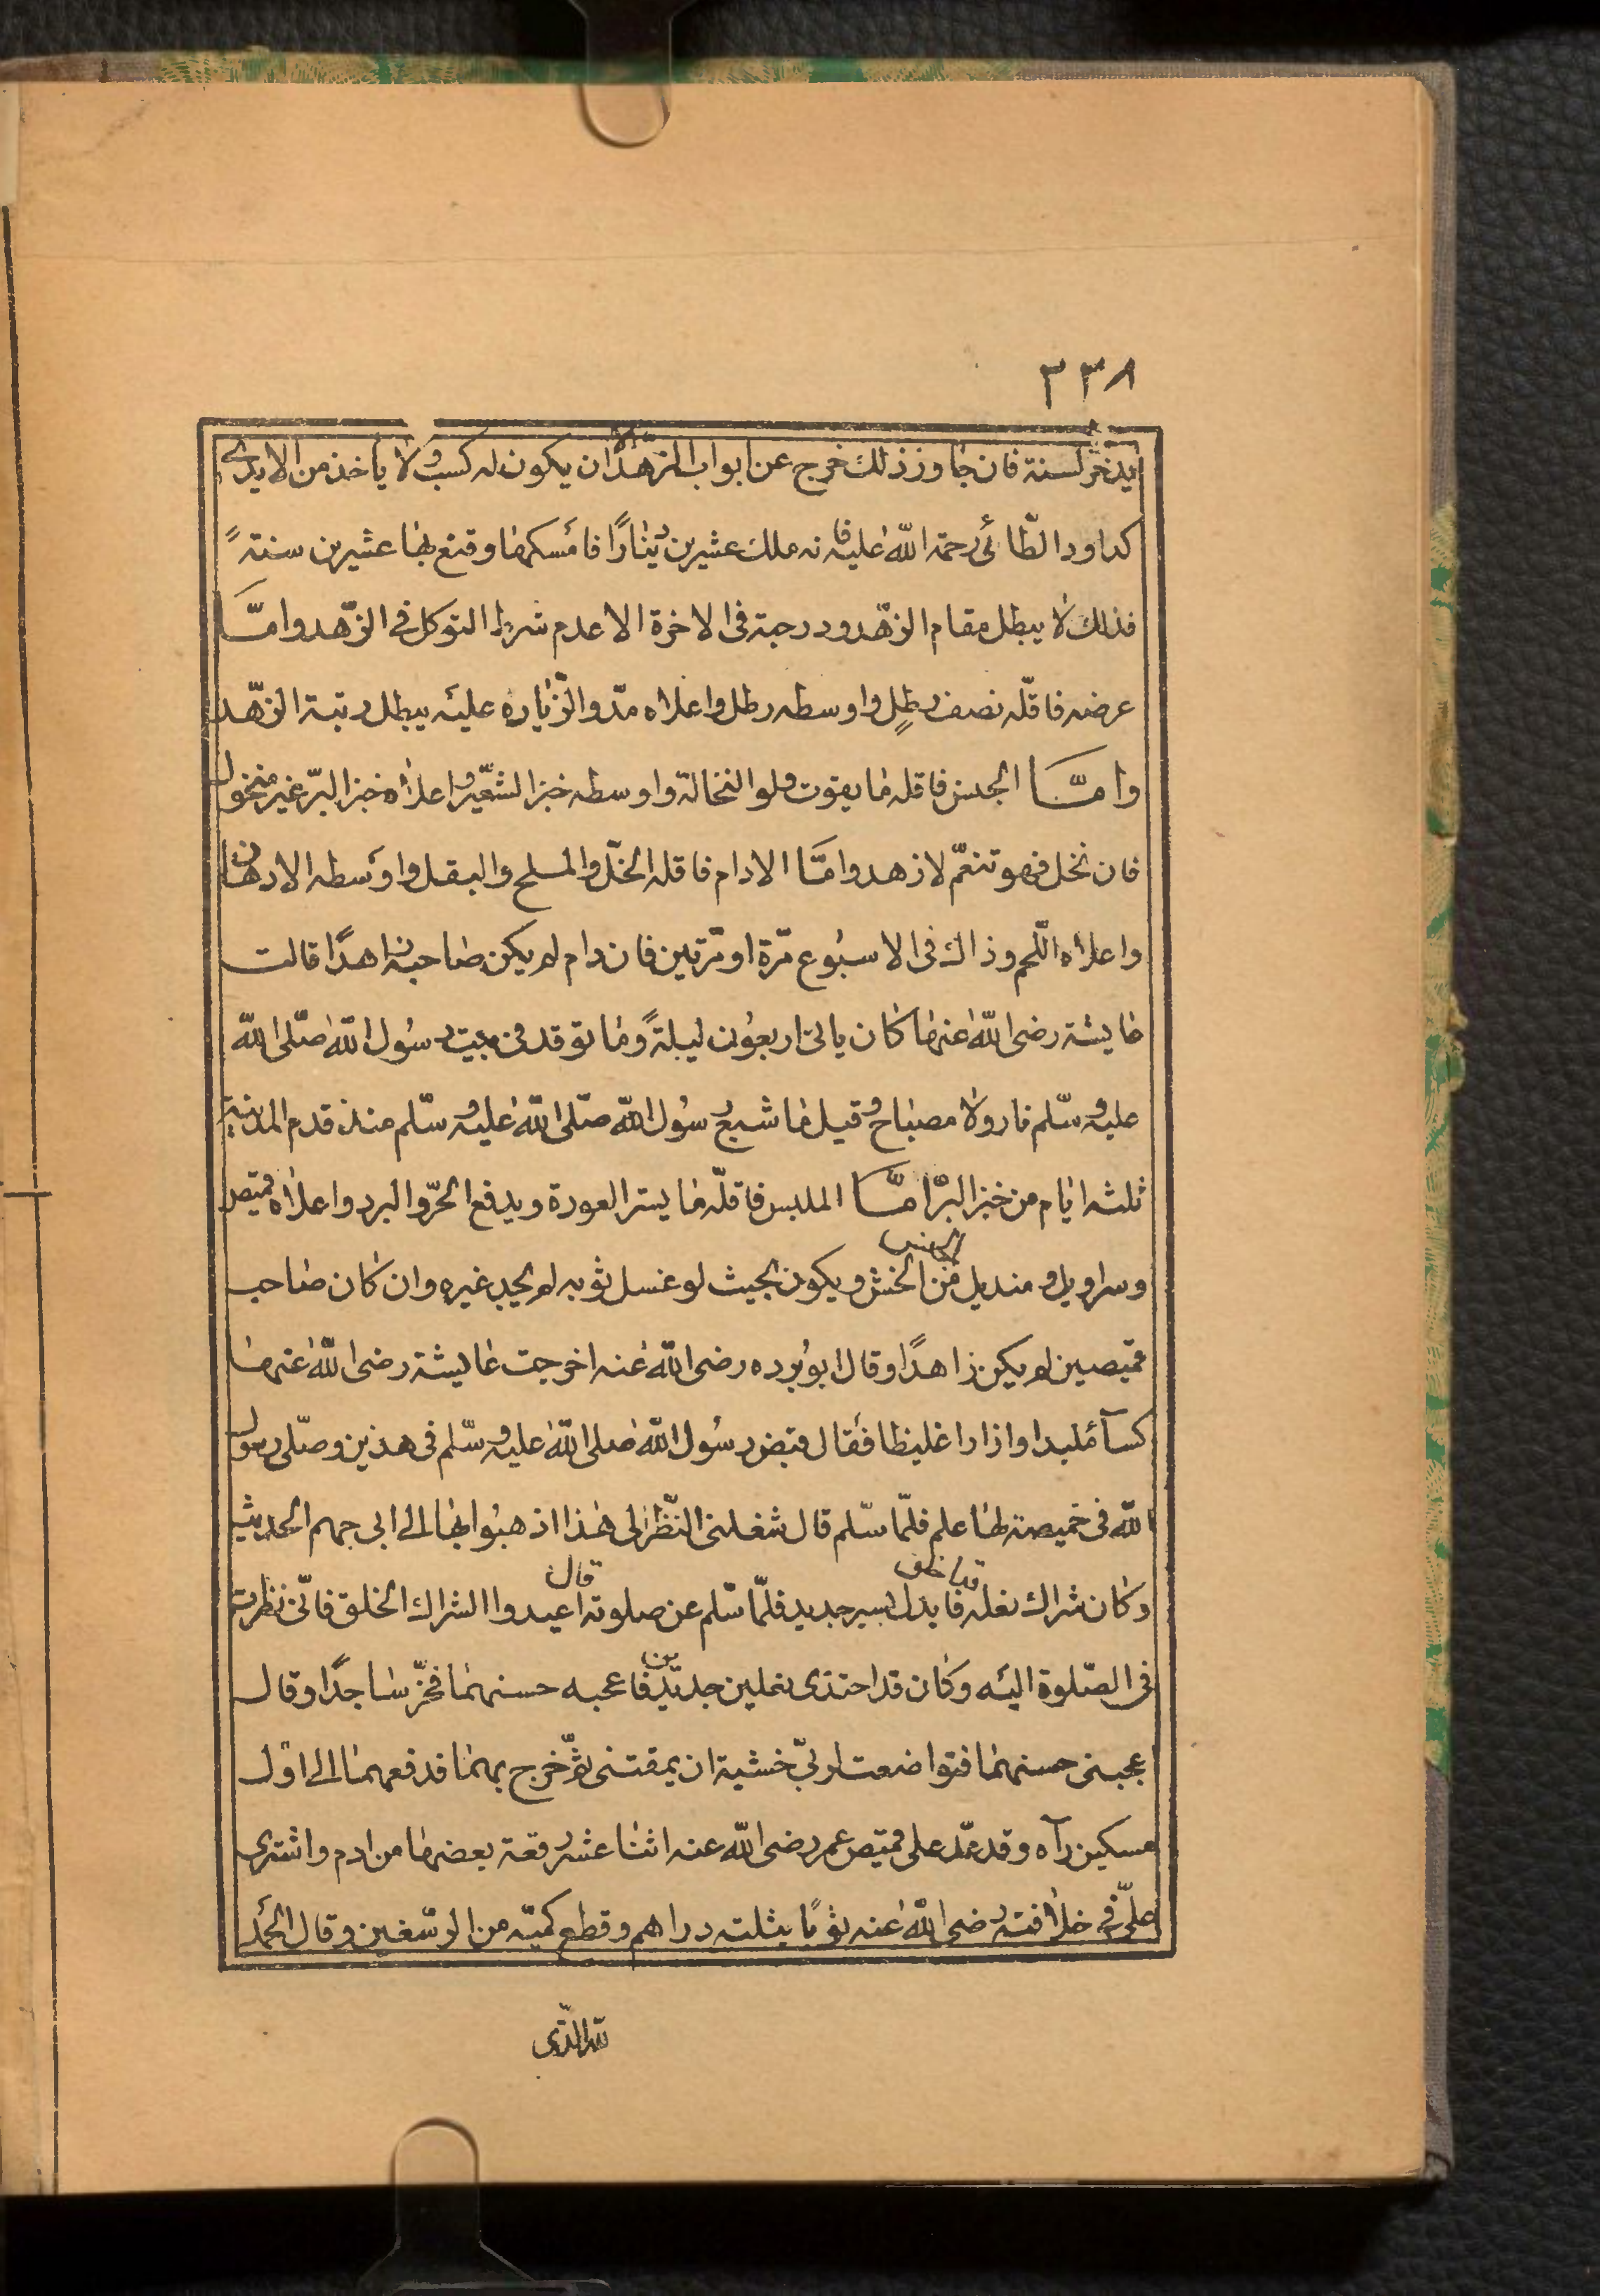 ٣٣٨
يدخر لسنة فان جاوز ذلك خرج عن ابواب الزهد الا ان يكون له كسب ولا ياخذ من الايدى
كداود الطّائى رحمة اللّٰه عليه فانه ملك عشرين دينارًا فامسكها وقنع بها عشرين سنتةً
فذلك لا يبطل مقام الزّهد ودرجته فى الاخرة الا عدم شرط التوكل فى الزّهد وامّا
عرضه فاقلّه نصف رطلٍ واوسطه رطل واعلاه مدّ والزّياره عليه يبطل رتبة الزّهد
وامّا الجنس فاقله ما يقوت ولو النخالة واوسطه خبز الشعير واعلاه خبز البرّ غير منخول
فان نخل فهو تنعّم لا زهد وامّا الادام فاقله الخلّ والملح والبقل واوسطه الادهان
واعلاه اللّحم وذاك فى الاسبوع مرّة او مرّتين فان دام لم يكن صاحبه زاهدًا قالت
عايشة رضى اللّٰه عنها كان ياتى اربعون ليلةً وما توقد فى بيت رسول اللّٰه صلّى اللّٰه
عليه وسّلم نار ولا مصباح وقيل ما شبع رسول اللّٰه صلّى اللّٰه عليه وسّلم منذ قدم المدينة
ثلثه ايام من خبز البرّ امّا الملبس فاقلّه ما يستر العورة ويدفع الحرّ والبرد واعلاه قميص
وسراويل ومنديل من الخشن ويكون بحيث لو غسل ثوبه لم يجد غيره وان كان صاحب
قميصين لم يكن زاهدًا وقال ابو برده رضى اللّٰه عنه اخرجت عايشة رضى اللّٰه عنها
كسآ ملبدا وازارا غليظا فقال قبض رسول اللّٰه صلى اللّٰه عليه وسّلم فى هذين وصلّى رسول
اللّٰه فى خميصة لها علم فلمّا سّلم قال شغلنى النّظر الى هذا اذهبوا بها الى ابى جهم الحديث
وكان شراك نعله قد اخلق فابدل بسير جديد فلمّا سّلم عن صلوته قال اعيدوا الشراك الخلق فانّى نظرت
فى الصّلوة اليه وكان قد احتذى نعلين جديدين فاعجبه حسنهما فخرّ ساجدًا وقال
اعجبنى حسنهما فتواضعت لربّى خشية ان يمقتنى ثمّ خرج بهما فدفعهما الى اوّل
مسكين رآه وقد عدّ على قميص عمر رضى اللّٰه عنه اثنا عشر رقعة بعضها من ادم واشترى
علىّ فى خلافته رضى اللّٰه عنه ثوبًا بثلثه دراهم وقطع كميّه من الرسّغين وقال الحمد
للّٰه الّذى